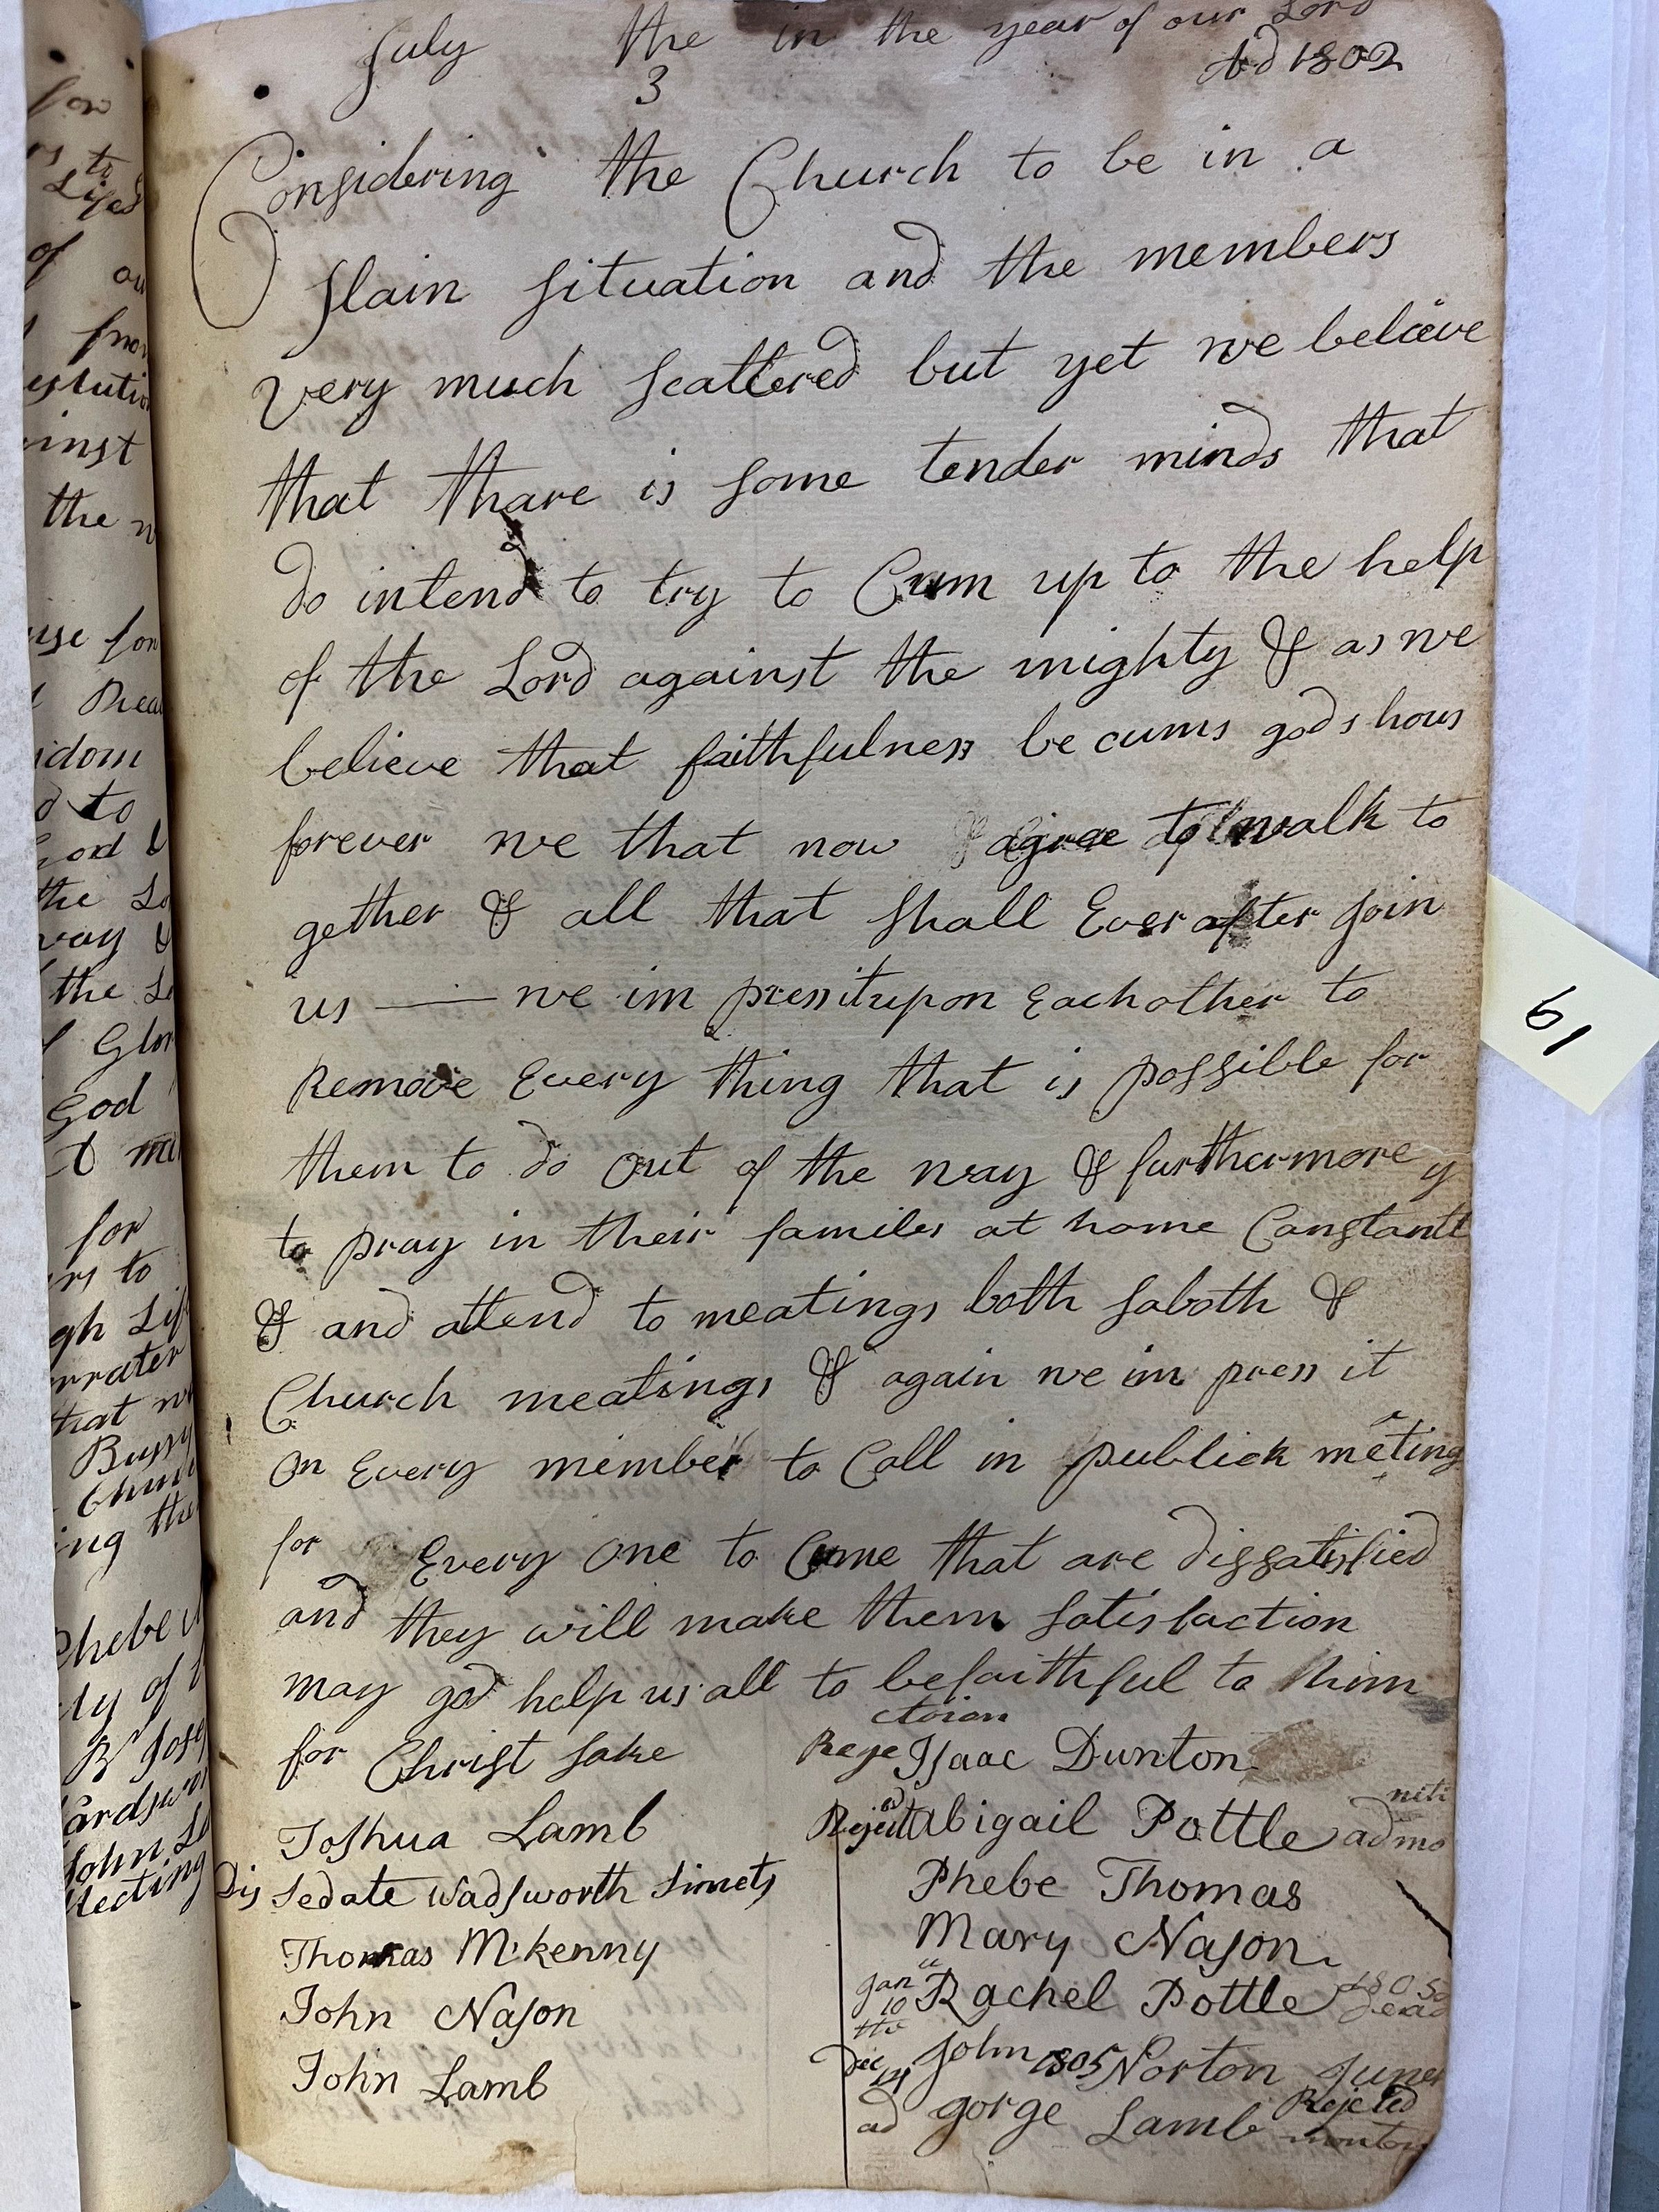 July the in the year of our Lord
3 Ad 1802
Considering the Church to be in a
slain situation and the members
very much scattered but yet we believe
that thare is some tender minds that
do intend to try to Cum up to the help
of the Lord against the mighty & as we
believe that faithfulness be cums gods hous
forever we that now agree to walk to
gether & all that shall Ever after join
us — we im press it upon Each other to
Remove Every thing that is possible for
them to do out of the way & furthermore
to pray in their familes at home Constantl y
& and attend to meatings both saboth &
Church meatings & again we im press it
on Every member to Call in publick meating
for Every one to Come that are dissatisfied
and they will make them satisfaction
may god help us all to be faithful to him
for Christ sake
Joshua Lamb
Dis sedate Wadsworth simets
Thomas Mckenny
John Nason
John Lamb
ctoion
Reje Isaac Dunton
Rejectd Abigail Pottle admo
niti
Phebe Thomas
Mary Nason
Jan u Rachel Pottle 1805
10 dead
the
Dec John 1805 Norton Juner
ad gorge Lamb Rejeted
61
for
to
of
inst
the
for
idom
to
the
the
Glor
God
for
to
that
Bussy
ing
of
John